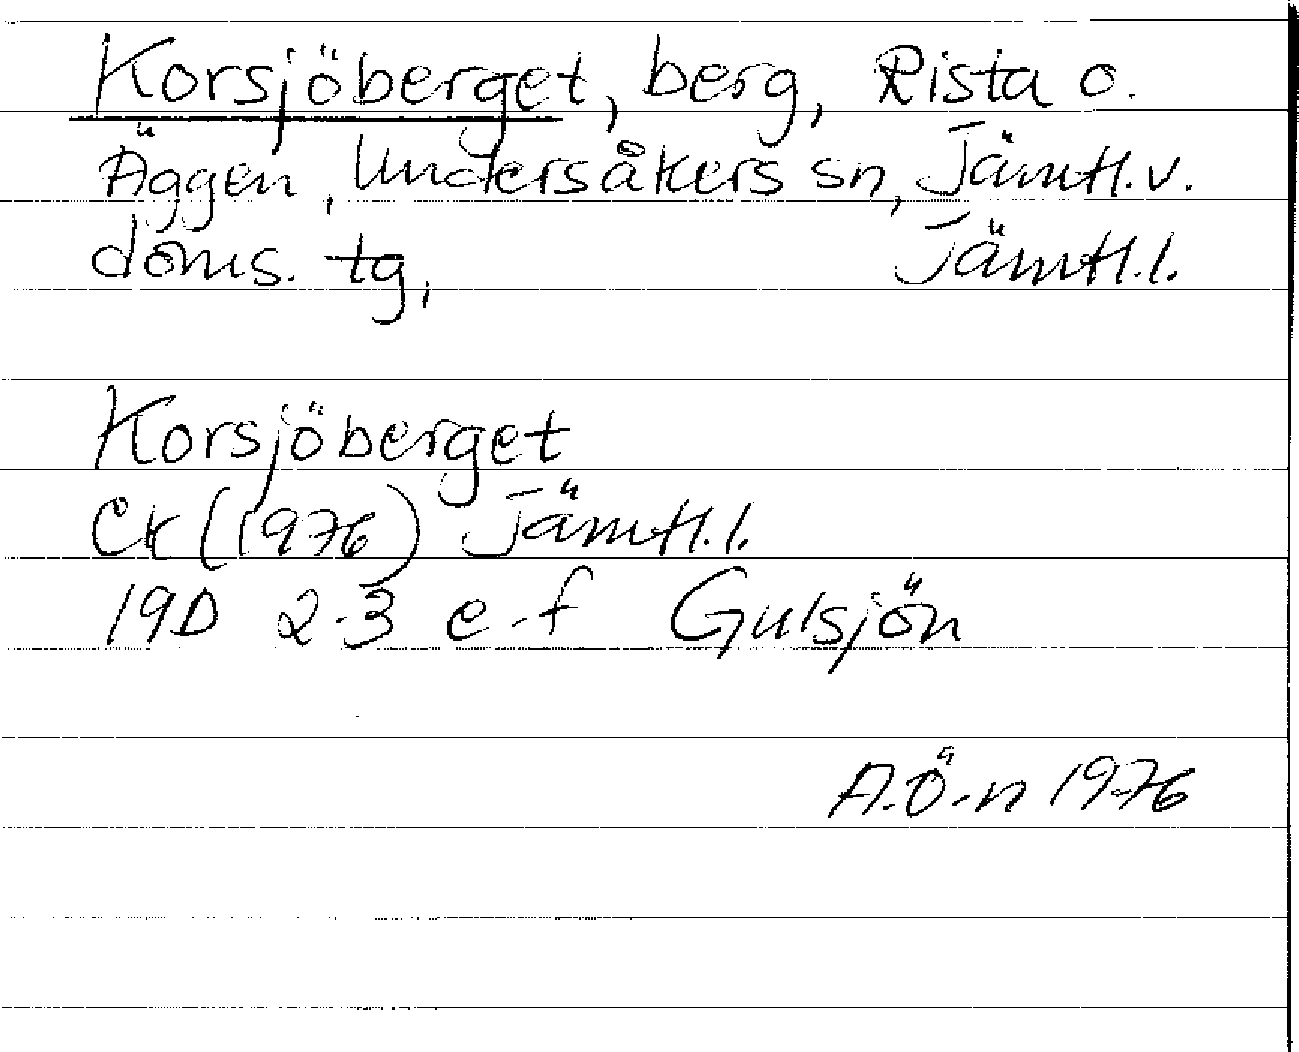 Korsjöberget, berg, Rista o.
Äggen, Undersåkers sn, Jämtl. v.
doms. tg, Jämtl. l.
Korsjöberget
Ek (1976) Jämtl. l.
19D 2-3 e-f Gulsjön
A.Ö-n 1976